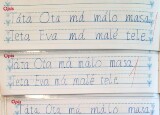 Opiš
Táta Ota má málo masa.
Teta Eva má malé tele.
Opiš
Táta Ota má málo masa.
Teta Eva má malé tele.
Opiš
Táta Ota má málo masa